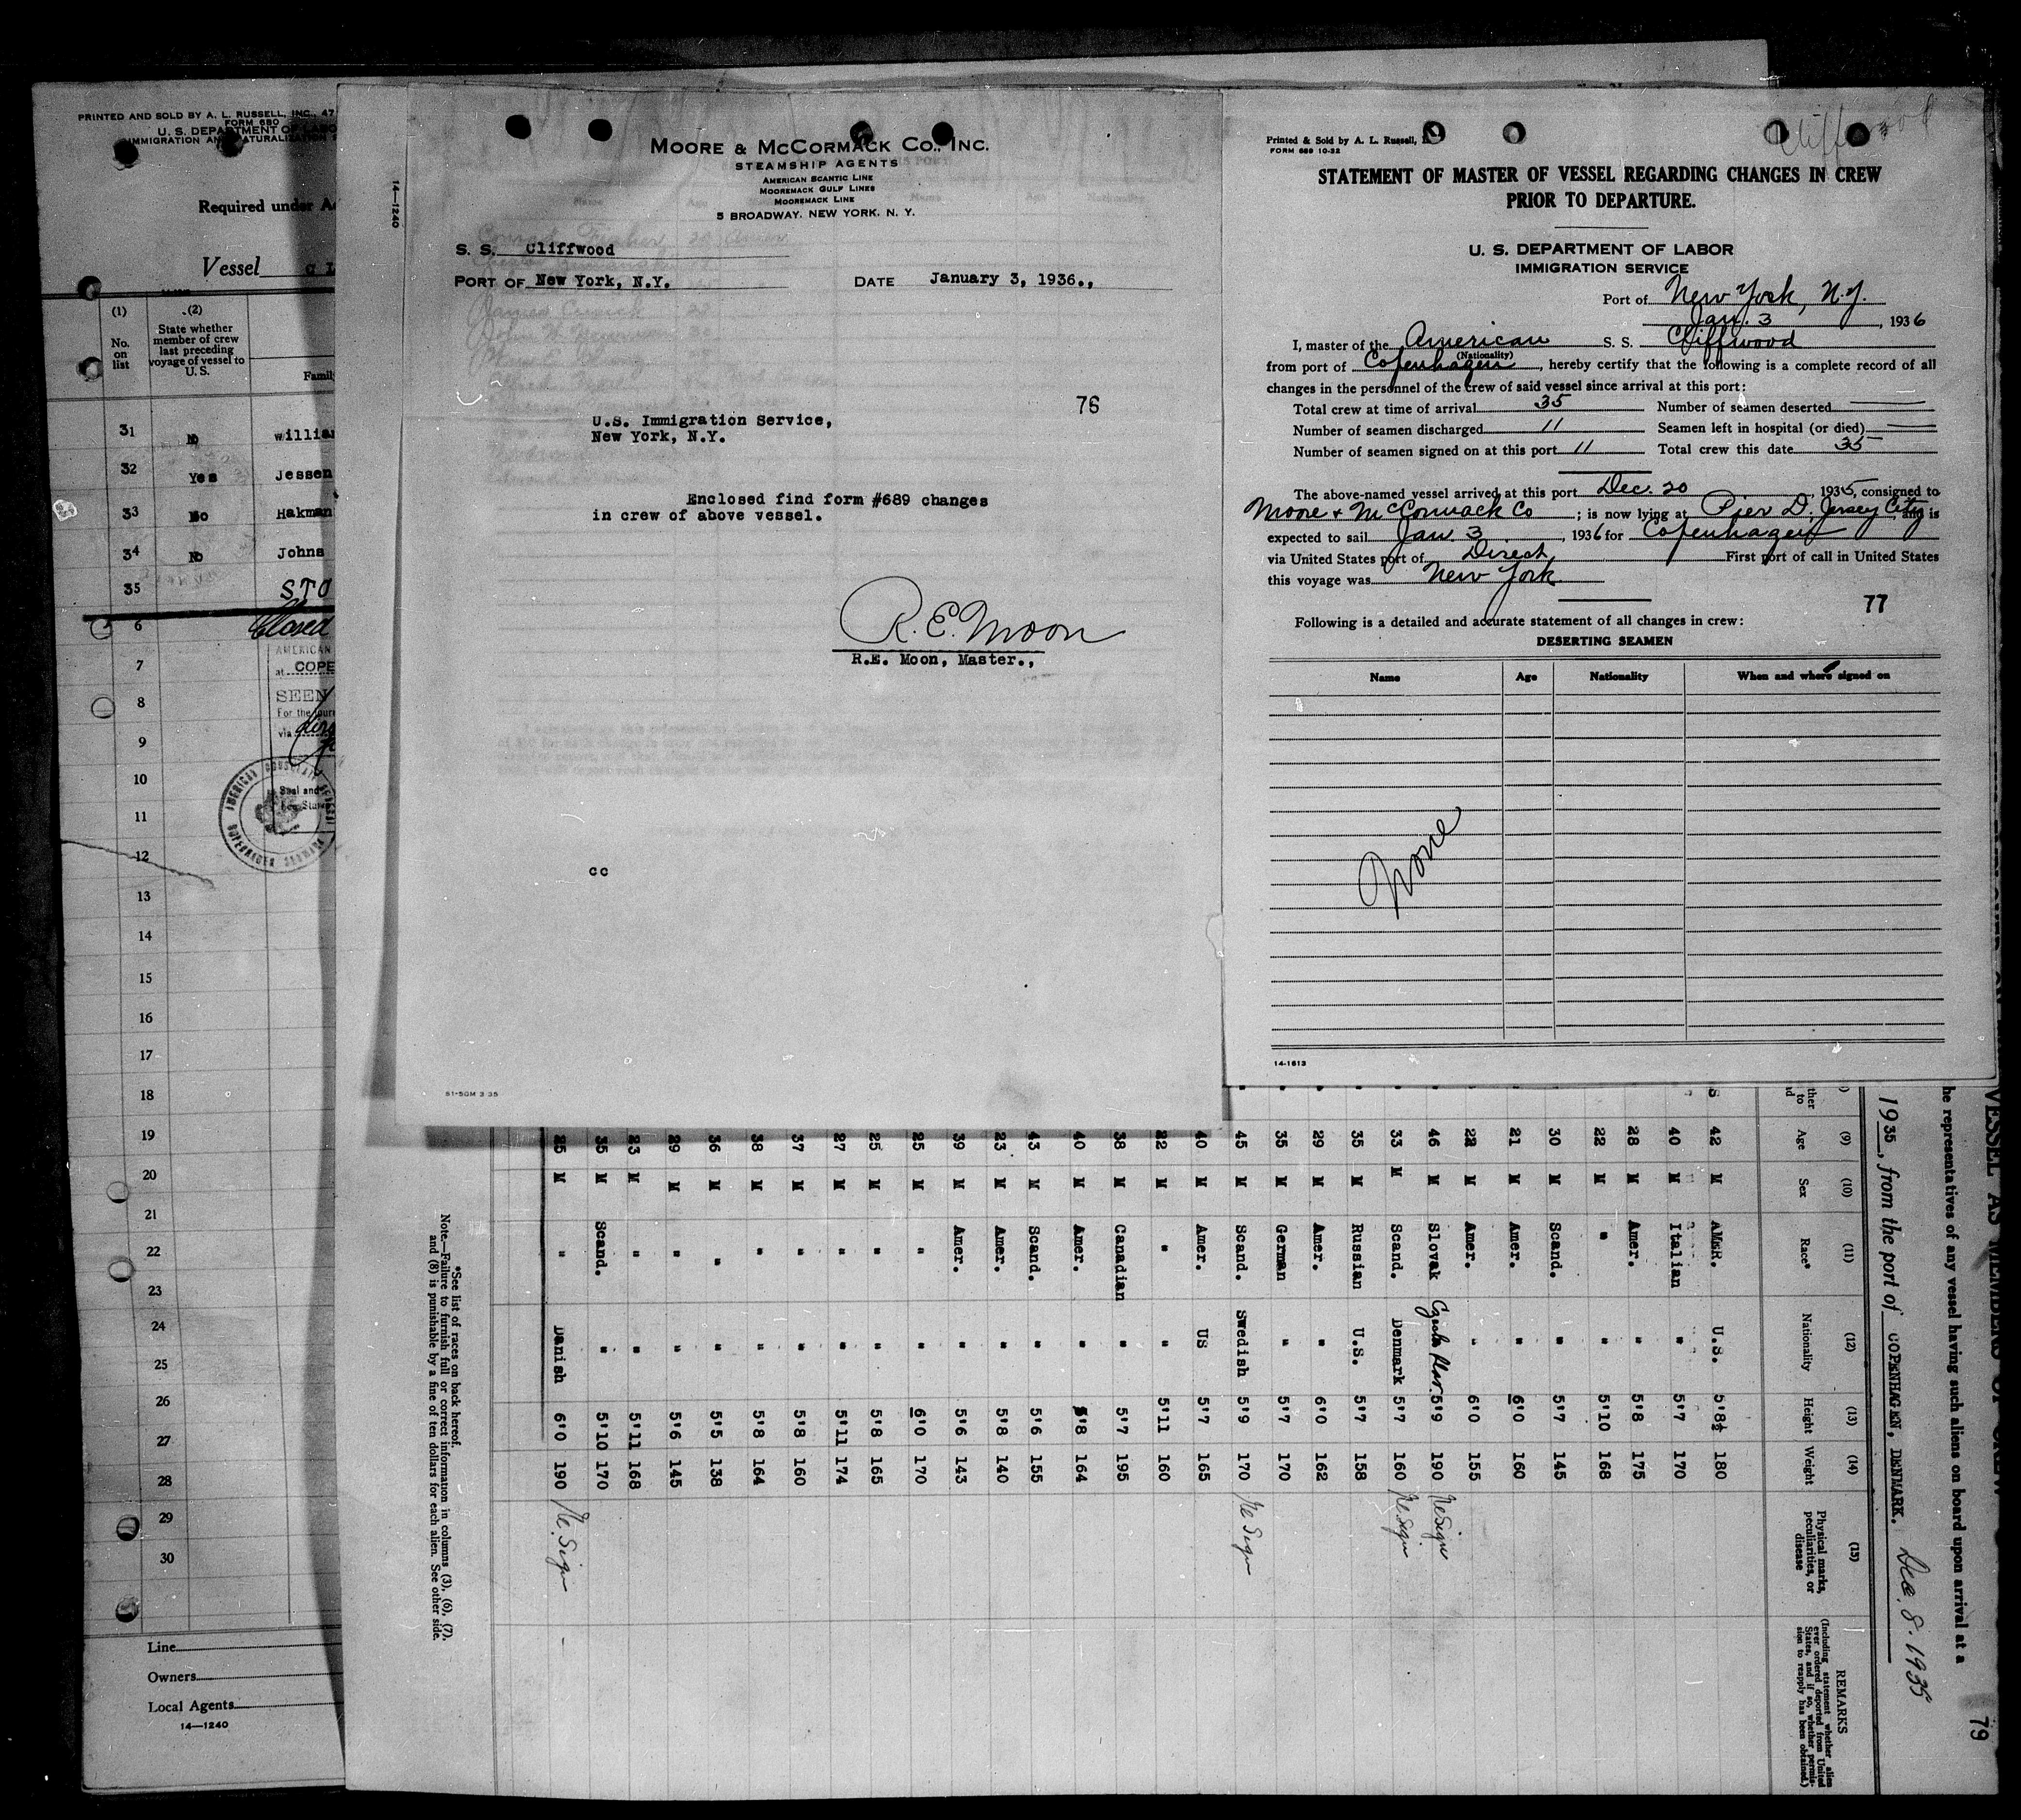 PRINTED AND SOLD BY A. L. RUSSELL, INC., 47
FORM 680
U. S. DEPARTMENT OF LABO
IMMIGRATION AND NATURALIZATION S
Required under A
Vessel
(1)
(2)
No.
on
list
State whether
member of crew
last preceding
voyage of vessel to
U. S.
Famil
31 No Willia
32 Yes Jessen
33 No Hakman
34 No Johns
35 STO
6 Closed
AMERICAN
7 at COPE
8 SEEN
For the jour
via
9
10
Seal and
Fee Sta
11
12
13
14
15
16
17
18
19
20
21
22
23
24
25
26
27
28
29
30
Line
Owners
Local Agents
14—1240
14—1240
MOORE & MCCORMACK CO., INC.
STEAMSHIP AGENTS
AMERICAN SCANTIC LINE
MOOREMACK GULF LINES
MOOREMACK LINE
5 BROADWAY, NEW YORK, N. Y.
S. S. Cliffwood
PORT OF New York, N.Y. DATE January 3, 1936.,
76
U.S. Immigration Service,
New York, N.Y.
Enclosed find form #689 changes
in crew of above vessel.
R.E. Moon
R.E. Moon, Master.,
cc
S1-5GM 3 35
Cliffwood
Printed & Sold by A. L. Russell, I
FORM 689 10-32
STATEMENT OF MASTER OF VESSEL REGARDING CHANGES IN CREW
PRIOR TO DEPARTURE.
U. S. DEPARTMENT OF LABOR
IMMIGRATION SERVICE
Port of New York, N.Y.
Jan. 3, 1936
I, master of the American S. S. Cliffwood
(Nationality)
from port of Copenhagen, hereby certify that the following is a complete record of all
changes in the personnel of the crew of said vessel since arrival at this port:
Total crew at time of arrival 35 Number of seamen deserted
Number of seamen discharged 11 Seamen left in hospital (or died)
Number of seamen signed on at this port 11 Total crew this date 35
The above-named vessel arrived at this port Dec. 20, 1935, consigned to
Moore & McCormack Co; is now lying at Pier D, Jersey City, and is
expected to sail Jan. 3, 1936 for Copenhagen
via United States port of Direct First port of call in United States
this voyage was New York
77
Following is a detailed and accurate statement of all changes in crew:
DESERTING SEAMEN
Name Age Nationality When and where signed on
None
14-1613
VESSEL AS MEMBERS OF CREW
he representatives of any vessel having such aliens on board upon arrival at a
1935, from the port of COPENHAGEN, DENMARK. Dec. 8. 1935
79
(9) (10) (11) (12) (13) (14) (15)
Age Sex Race* Nationality Height Weight Physical marks, peculiarities, or disease
REMARKS
(Including statement whether alien
ever ordered deported from United
States, and if so, whether permis-
sion to reapply has been obtained.)
42 M AMER. U.S. 5'8½ 180
40 M Italian " 5'7 170
28 M Amer. " 5'8 175
22 M " " 5'10 168
30 M Scand. " 5'7 145
21 M Amer. " 6'0 160
22 M Amer. " 6'0 155
46 M Slovak 5'9 190 No Sign
33 M Scand. Denmark 5'7 160 No Sign
35 M Russian U.S. 5'7 158
29 M Amer. " 6'0 162
35 M German " 5'7 170
45 M Scand. Swedish 5'9 170 No Sign
40 M Amer. US 5'7 165
22 M " " 5'11 160
38 M Canadian " 5'7 195
40 M Amer. " 5'8 164
43 M Scand. " 5'6 155
23 M Amer. " 5'8 140
39 M Amer. " 5'6 143
25 M " " 6'0 170
25 M " " 5'8 165
27 M " " 5'11 174
37 M " " 5'8 160
38 M " " 5'8 164
36 M " " 5'5 138
29 M " " 5'6 145
23 M " " 5'11 168
35 M Scand. " 5'10 170
25 M " Danish 6'0 190 No. Sign
*See list of races on back hereof.
Note.—Failure to furnish full or correct information in columns (3), (6), (7),
and (8) is punishable by a fine of ten dollars for each alien. See other side.